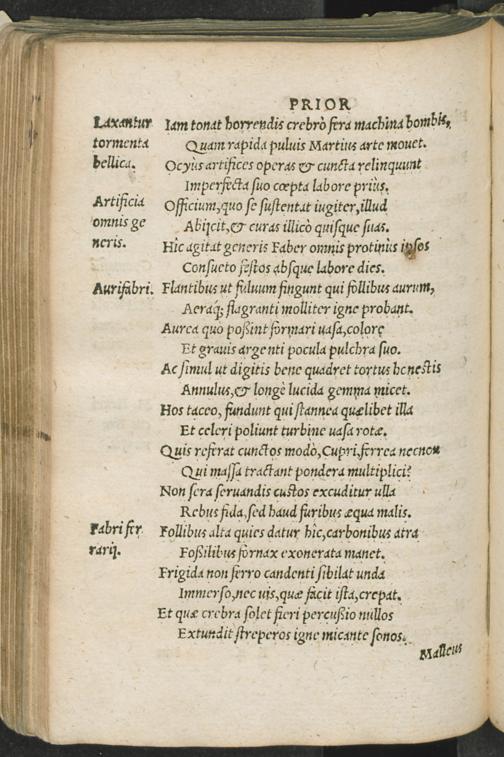 PRIOR
Laxantur
tormenta
bellica.
Iam tonat horrendis crebrò fera machina bombis,
Quam rapida puluis Martius arte mouet.
Ocyùs artifices operas & cuncta relinquunt
Imperfecta suo cœpta labore priùs.
Artificia
omnis ge
neris.
Officium, quo se sustentat iugiter, illud
Abijcit, & curas illicò quisque suas.
Hic agitat generis Faber omnis protinùs ipsos
Consueto festos absque labore dies.
Aurifabri.
Flantibus ut fuluum fingunt qui follibus aurum,
Aeraq; flagranti molliter igne probant.
Aurea quo poßint formari uasa, colore
Et grauis argenti pocula pulchra suo.
Ac simul ut digitis bene quadret tortus honestis
Annulus, & longè lucida gemma micet.
Hos taceo, fundunt qui stannea quælibet illa
Et celeri poliunt turbine uasa rotæ.
Quis referat cunctos modò, Cupri, ferrea necnon
Qui massa tractant pondera multiplici?
Non sera seruandis custos excuditur ulla
Rebus fida, sed haud furibus æqua malis.
Fabri fer
rarij.
Follibus alta quies datur hîc, carbonibus atra
Foßilibus fornax exonerata manet.
Frigida non ferro candenti sibilat unda
Immerso, nec uis, quæ facit ista, crepat.
Et quæ crebra solet fieri percußio nullos
Extundit streperos igne micante sonos.
Malleus